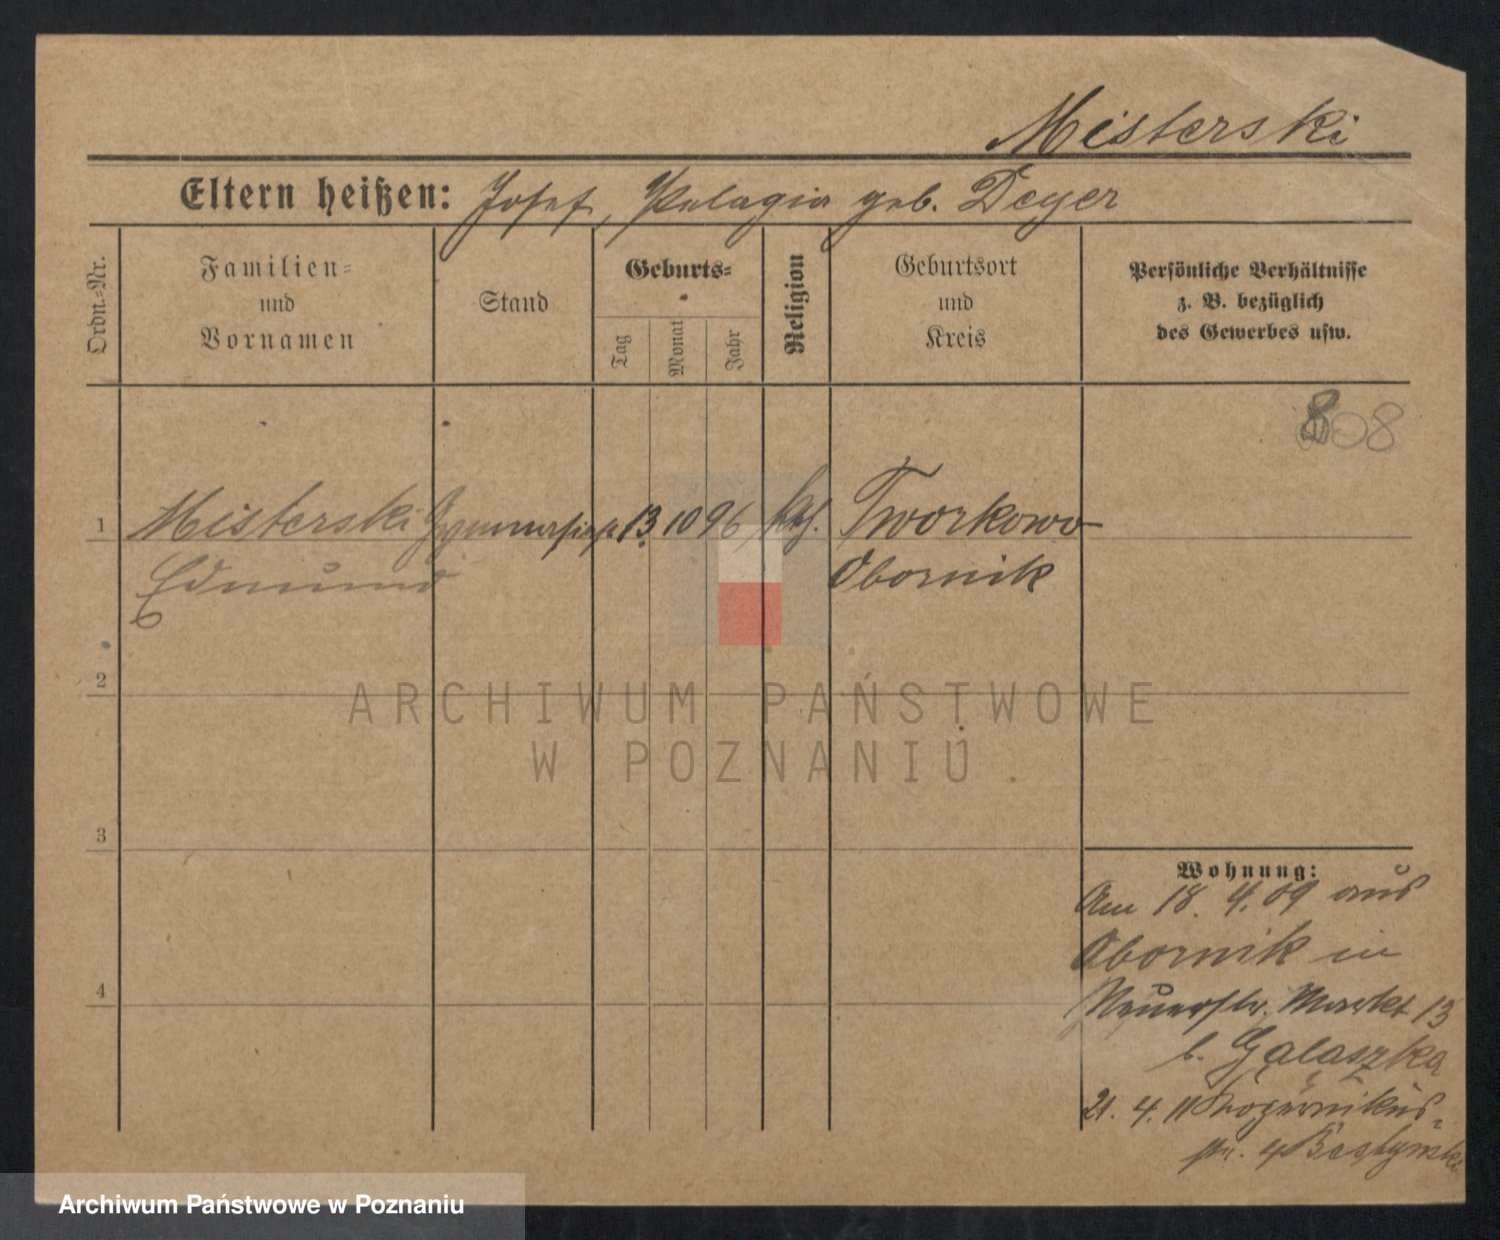 Misterski
Eltern heißen: Josef, Pelagia geb. Deyer
Ordn.=Nr.
Familien=
und
Vornamen
Stand
Geburts=
Tag
Monat
Jahr
Religion
Geburtsort
und
Kreis
Persönliche Verhältnisse
z. B. bezüglich
des Gewerbes usw.
808
1 Misterski Gymnasiast 13. 10 96 kth. Tworkowo
Edmund Obornik
2
ARCHIWUM PAŃSTWOWE
W POZNANIU
3
Wohnung:
Am 18. 4. 09 aus
Obornik in
Markt 13
b. Galaszka
4
21. 4. 11
str. 4
Archiwum Państwowe w Poznaniu